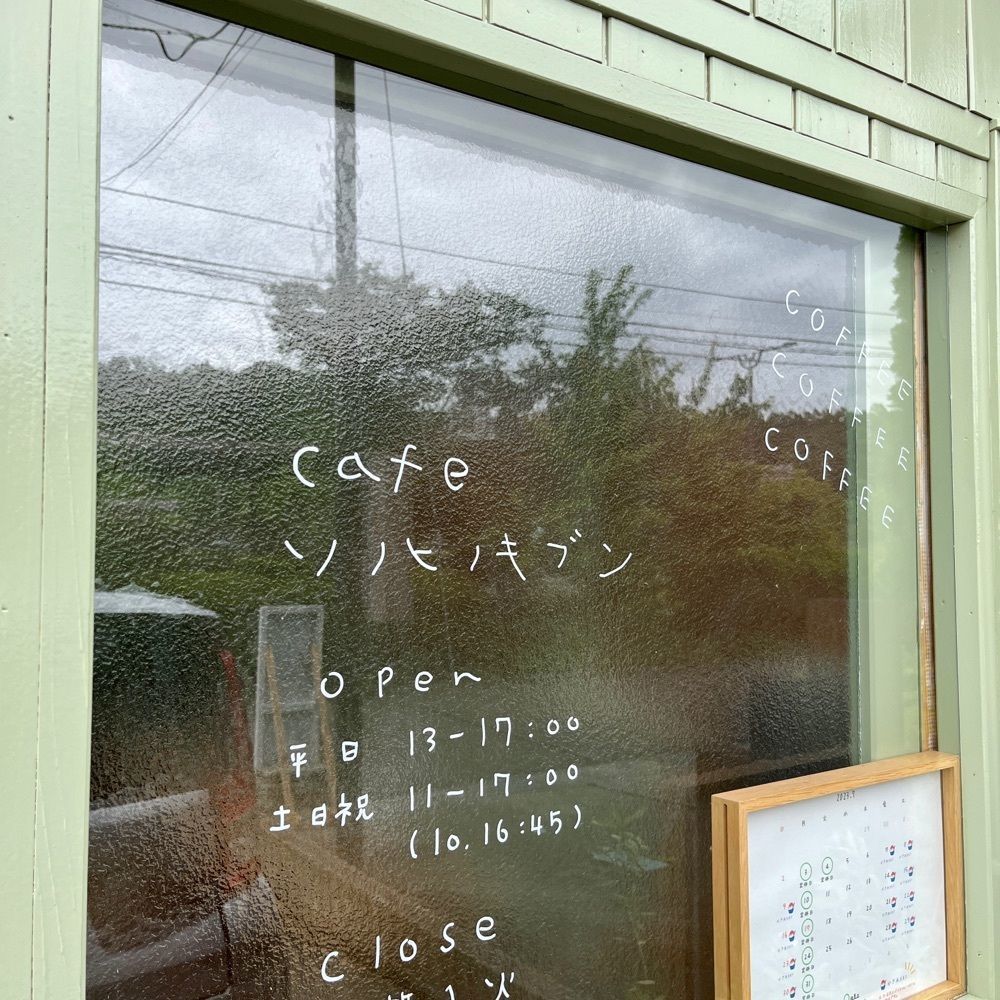 COFFEE
COFFEE
COFFEE
cafe
ソノヒノキブン
open
平日 13-17:00
土日祝 11-17:00
(lo.16:45)
close
2023.7